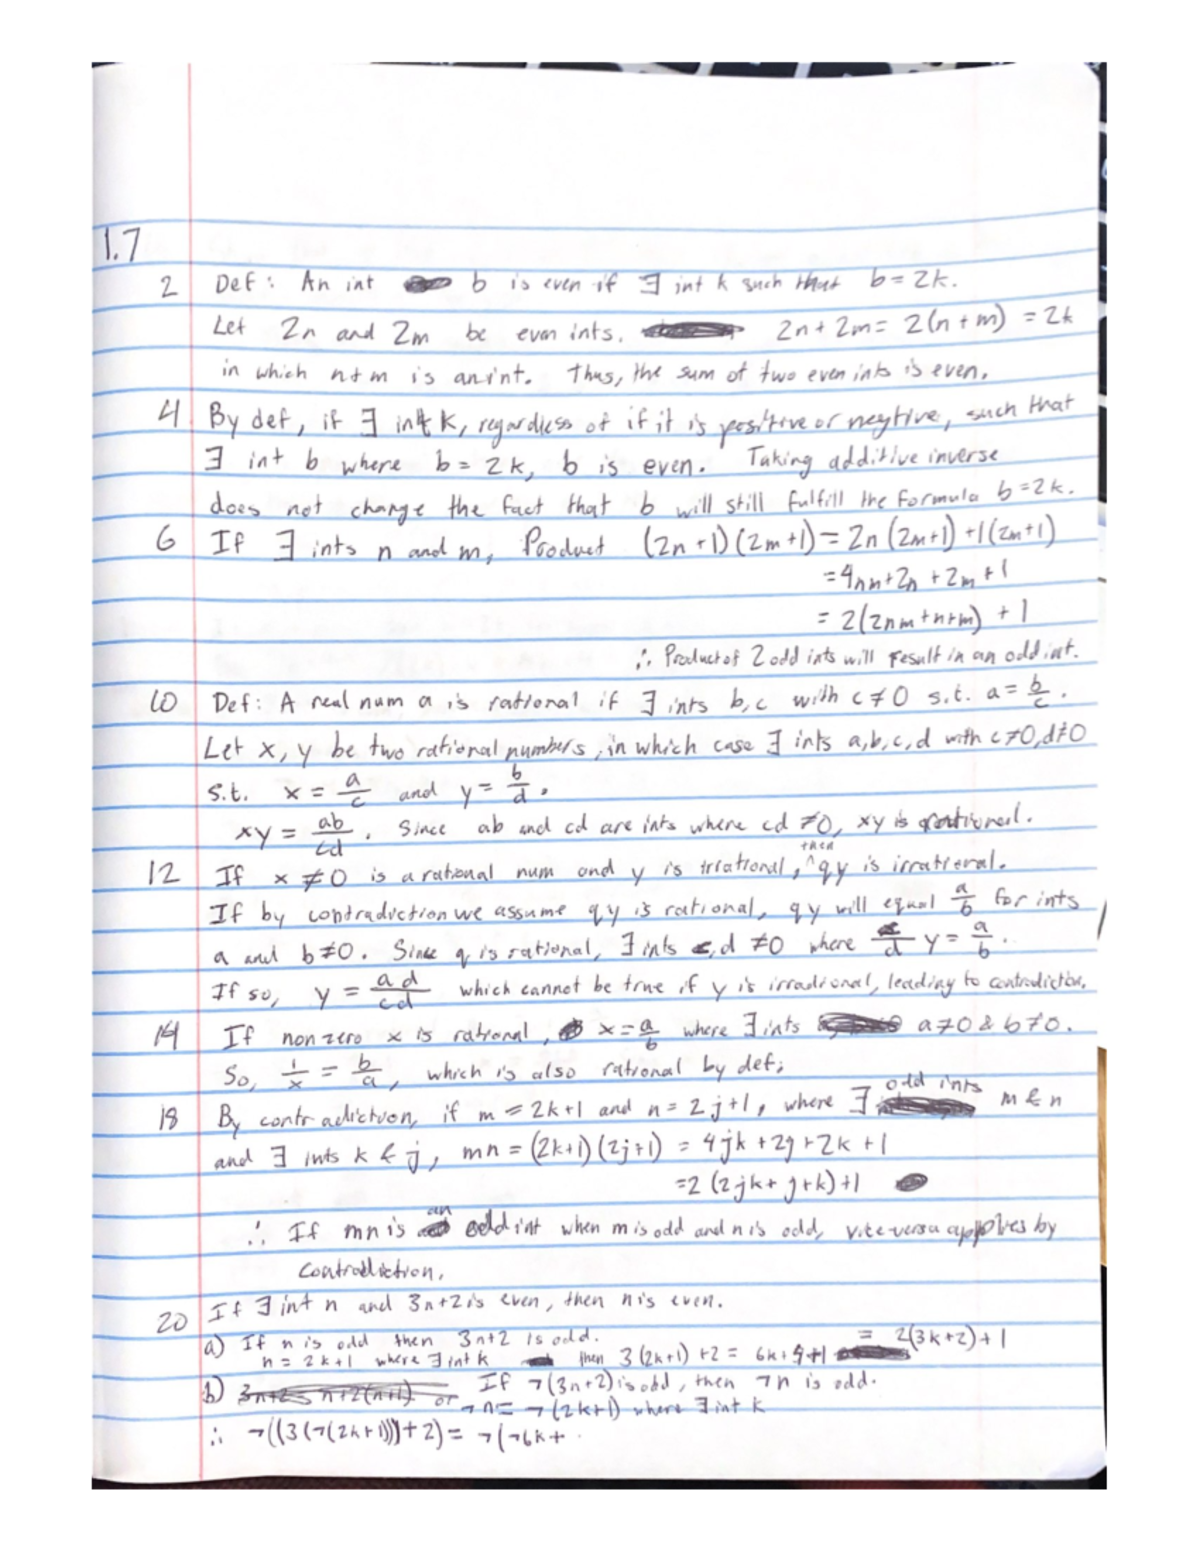 1.7
2 Def: An int b is even if ∃ int k such that b = 2k.
Let 2n and 2m be even ints. 2n + 2m = 2(n + m) = 2k
in which n+m is an int. Thus, the sum of two even ints is even.
4 By def, if ∃ int k, regardless of if it is positive or negtive, such that
∃ int b where b = 2k, b is even. Taking additive inverse
does not change the fact that b will still fulfill the formula b = 2k.
6 If ∃ ints n and m, Product (2n+1)(2m+1) = 2n(2m+1)+1(2m+1)
= 4nm+2n+2m+1
= 2(2nm+n+m) + 1
∴ Product of 2 odd ints will result in an odd int.
10 Def: A real num a is rational if ∃ ints b,c with c≠0 s.t. a = b/c.
Let x, y be two rational numbers, in which case ∃ ints a,b,c,d with c≠0,d≠0
s.t. x = a/c and y = b/d.
xy = ab/cd. Since ab and cd are ints where cd ≠0, xy is rational.
12 If x ≠ 0 is a rational num and y is irrational, then qy is irrational.
If by contradiction we assume qy is rational, qy will equal a/b for ints
a and b≠0. Since q is rational, ∃ ints c,d ≠0 where c/d y = a/b.
If so, y = ad/cd which cannot be true if y is irrational, leading to contradiction.
14 If nonzero x is rational, x = a/b where ∃ ints a≠0 & b≠0.
So, 1/x = b/a, which is also rational by def;
18 By contradiction, if m = 2k+1 and n = 2j+1, where ∃ odd ints m & n
and ∃ ints k & j, mn = (2k+1)(2j+1) = 4jk + 2j + 2k + 1
= 2(2jk + j + k) + 1
∴ If mn is an odd int when m is odd and n is odd, vice versa applies by
contradiction.
20 If ∃ int n and 3n+2 is even, then n is even.
a) If n is odd then 3n+2 is odd.
n = 2k+1 where ∃ int k then 3(2k+1)+2 = 6k+4+1 = 2(3k+2)+1
b) 3n+2 n+2(n+1) or If ¬(3n+2) is odd, then ¬n is odd.
¬n = ¬(2k+1) where ∃ int k
∴ ¬((3(¬(2k+1)))+2) = ¬(¬6k+